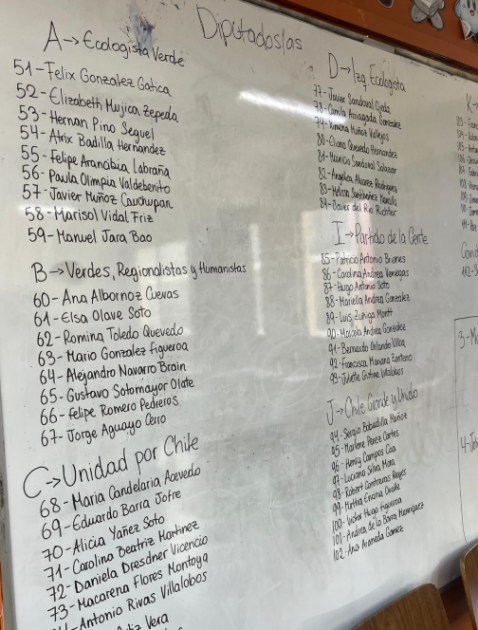 Diputados/as
A→Ecologista Verde
51-Felix Gonzalez Gatica
52-Elizabeth Mujica Zepeda
53-Hernan Pino Seguel
54-Atrix Badilla Hernandez
55-Felipe Arancibia Labraña
56-Paula Olimpia Valdebenito
57-Javier Muñoz Cauchupan
58-Marisol Vidal Friz
59-Manuel Jara Bao
B→Verdes, Regionalistas y Humanistas
60-Ana Albornoz Cuevas
61-Elsa Olave Soto
62-Romina Toledo Quevedo
63-Mario Gonzalez Figueroa
64-Alejandro Navarro Brain
65-Gustavo Sotomayor Olate
66-Felipe Romero Pedreros
67-Jorge Aguayo Cerro
C→Unidad por Chile
68-Maria Candelaria Acevedo
69-Eduardo Barra Jofre
70-Alicia Yañez Soto
71-Carolina Beatriz Martinez
72-Daniela Dresdner Vicencio
73-Macarena Flores Montoya
Antonio Rivas Villalobos
Vera
D→Izq Ecologista
77-Javier Sandoval Ojeda
78-Camila Arriagada Gonzalez
79-Ximena Muñoz Vallejos
80-Eliana Quevedo Hernandez
81-Mauricio Sandoval Salazar
82-Angelica Alvarez Rodriguez
83-Melissa
84-Daver del Rio Richter
I→Partido de la Gente
85-Patricio Antonio Briones
86-Carolina Andrea Venegas
87-Hugo Antonio Soto
88-Mariella Andrea Gonzalez
89-Luis Zuñiga Montt
90-Macala Andrea Gonzalez
91-Bernardo Orlando Ulloa
92-Francisca Mariana
93-Juliette Cristina Villalobos
J→Chile Grande y Unido
94-Sergio Bobadilla Muñoz
95-Marlene Perez Cartes
96-Henry Campos Coa
97-Luciano Silva Mora
98-Robert Contreras Reyes
99-Mirtha Encina Ovalle
100-Victor Hugo Figueroa
101-Andrea de la Barra Manriquez
102-Ana Araneda Gomez
K→